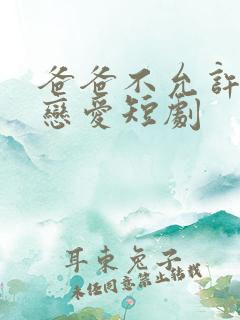 爸爸不允許
戀愛短劇
耳東兔子
未經同意禁止轉載